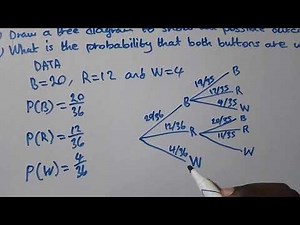 Draw a tree diagram to show the possible
What is the probability that both buttons are
DATA
B=20, R=12 and W=4
P(B) = 20/36
P(R) = 12/36
P(W) = 4/36
20/36
12/36
4/36
B
R
W
19/35
12/35
4/35
B
R
W
20/35
11/35
B
R
W